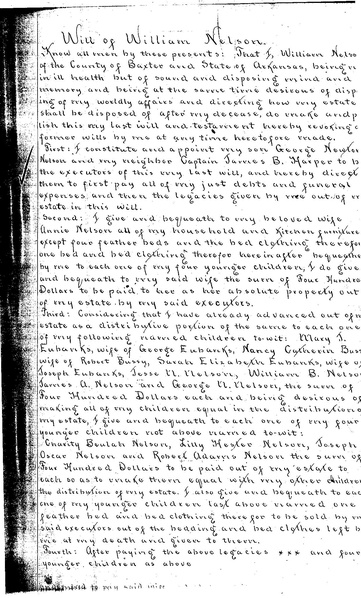 Will of William Nelson.
Know all men by these presents: That I, William Nelso
of the County of Baxter and State of Arkansas, being
in ill health but of sound and disposing mind and
memory and being at the same time desirous of disp
ing of my worldly affairs and directing how my estate
shall be disposed of after my decease, do make and p
lish this my last will and testament hereby revoking
former will by me at any time heretofore made.
First: I constitute and appoint my son George
Nelson and my neighbor Captain James B. Harper to b
the executors of this my last will, and hereby direct
them to first pay all of my just debts and funeral
expenses and then the legacies given by me out of m
estate in this will.
Second: I give and bequeath to my beloved wife
Annie Nelson all of my household and kitchen furniture
except four feather beds and the bed clothing therefor
one bed and bed clothing therefor hereinafter bequeathe
by me to each one of my four younger children, I do give
and bequeath to my said wife the sum of Four Hundred
Dollars to be paid to her as her absolute property out
of my estate by my said executors.
Third: Considering that I have already advanced out of m
estate as a distributive portion of the same to each one
of my following named children to wit: Mary J.
Eubanks, wife of George Eubanks, Nancy Catherin
wife of Robert Bussy, Sarah Elizabeth Eubanks, wife o
Joseph Eubanks, Jesse N. Nelson, William B. Nelso
James A. Nelson and George N. Nelson, the sum of
Four Hundred Dollars each and being desirous of
making all of my children equal in the distribution o
my estate, I give and bequeath to each one of my four
younger children not above named to wit:
Charity Beulah Nelson, Lilly Nelson, Joseph
Oscar Nelson and Robert Adams Nelson the sum of
Four Hundred Dollars to be paid out of my estate to
each so as to make them equal with my other children
the distribution of my estate. I also give and bequeath to eac
one of my younger children last above named one
feather bed and bed clothing therefor to be sold by m
said executors out of the bedding and bed clothes left b
me at my death and given to them.
Fourth: After paying the above legacies xxx and four
younger children as above
to my said wife